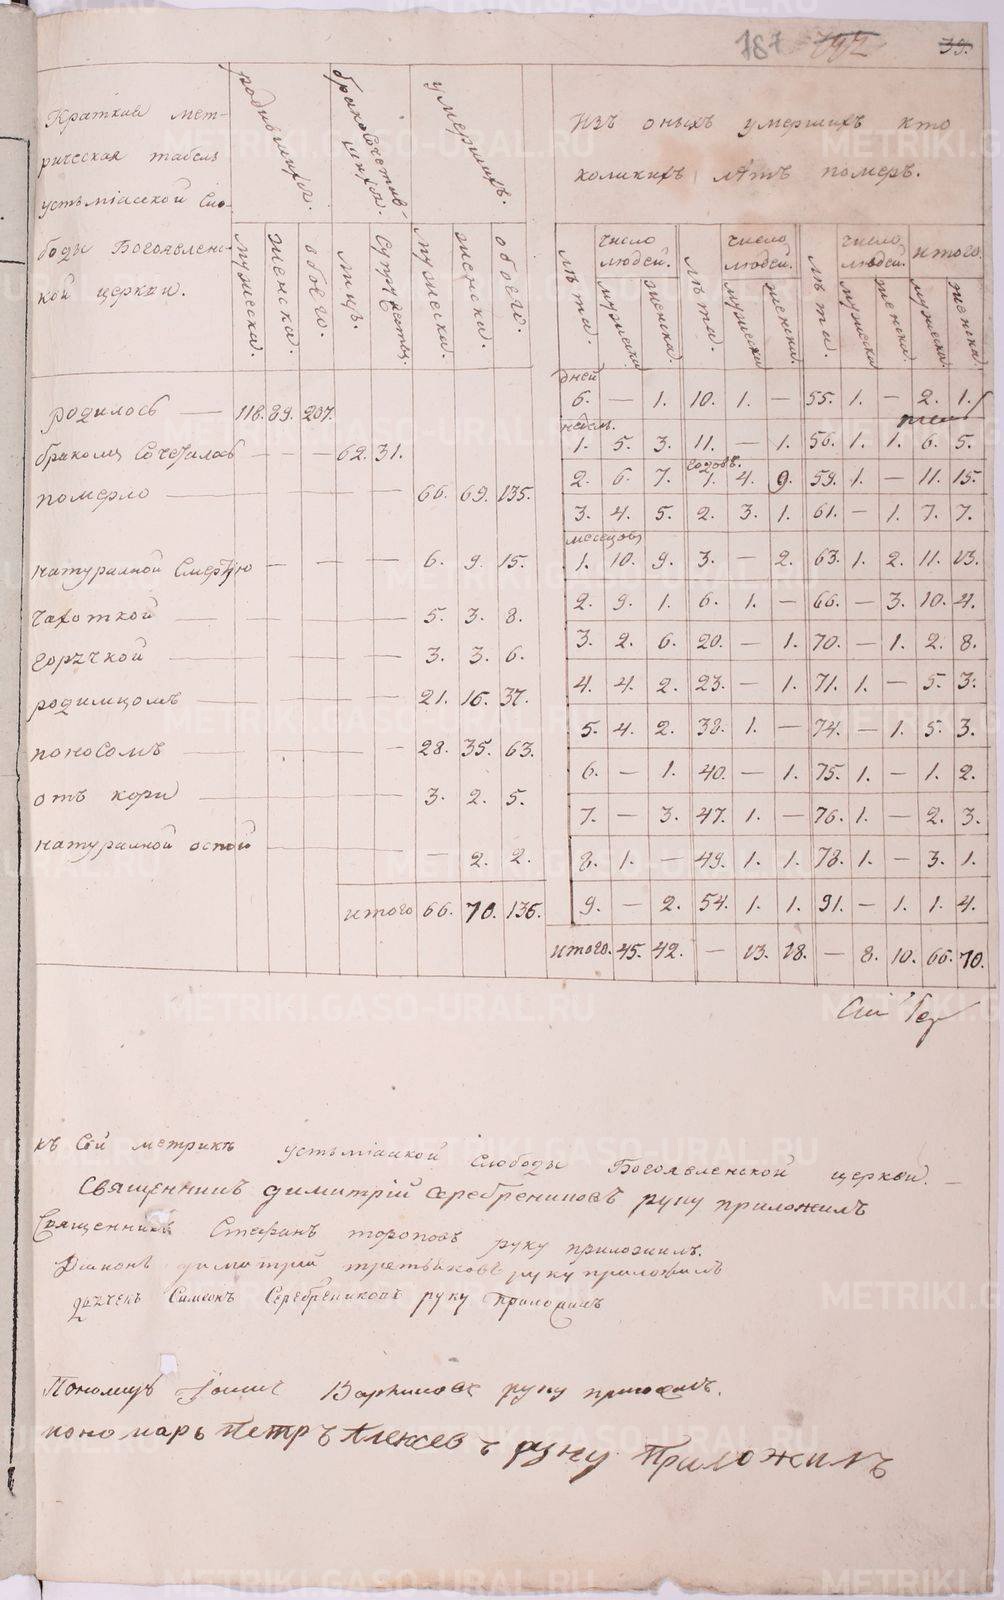 187 792 39.
Краткая мет-
рическая табель
устьмiасской Сло-
боды Богоявленс-
кой церкви.
родившихся.
бракосочетав-
шихся.
умершихъ.
Изъ оныхъ умершихъ кто
коликихъ лѣтъ померъ.
мужеска. женска. обоего. лицъ. Супружествъ. мужеска. женска. обоего.
лѣта. число людей. лѣта. число людей. лѣта. число людей. итого.
мужеска женска. мужеска женска. мужеска женска. мужеска. женска.
родилось — 118. 89. 207.
бракомъ Сочеталось — — — 62. 31.
померло — — — — — 66. 69. 135.
натуралной Смертью — — — — 6. 9. 15.
Чахоткой — — — — 5. 3. 8.
горячкой — — — — 3. 3. 6.
родимцомъ — — — — 21. 16. 37.
поносомъ — — — — 28. 35. 63.
отъ кори — — — — 3. 2. 5.
натуралной оспой — — — — — 2. 2.
итого 66. 70. 136.
дней
6. — 1. 10. 1. — 55. 1. — 2. 1.
недель.
1. 5. 3. 11. — 1. 56. 1. 1. 6. 5.
годовъ.
2. 6. 7. 1. 4. 9. 59. 1. — 11. 15.
3. 4. 5. 2. 3. 1. 61. — 1. 7. 7.
месецовъ
1. 10. 9. 3. — 2. 63. 1. 2. 11. 13.
2. 9. 1. 6. 1. — 66. — 3. 10. 4.
3. 2. 6. 20. — 1. 70. — 1. 2. 8.
4. 4. 2. 23. — 1. 71. 1. — 5. 3.
5. 4. 2. 38. 1. — 74. — 1. 5. 3.
6. — 1. 40. — 1. 75. 1. — 1. 2.
7. — 3. 47. 1. — 76. 1. — 2. 3.
8. 1. — 49. 1. 1. 78. 1. — 3. 1.
9. — 2. 54. 1. 1. 91. — 1. 1. 4.
итого. 45. 42. — 13. 18. — 8. 10. 66. 70.
къ Сей метрикѣ устьмiасской слободы Богоявленской церкви. —
Священникъ димитрiй Серебрениковъ руку приложилъ
Священникъ Стефанъ тороповъ руку приложилъ.
Диаконъ димитрий третьяковъ руку приложилъ
дьячекъ Симеонъ Серебрениковъ руку приложилъ
Пономарь
руку приложилъ.
пономарь Петръ Алексеевъ руку Приложилъ
METRIKI.GASO-URAL.RU